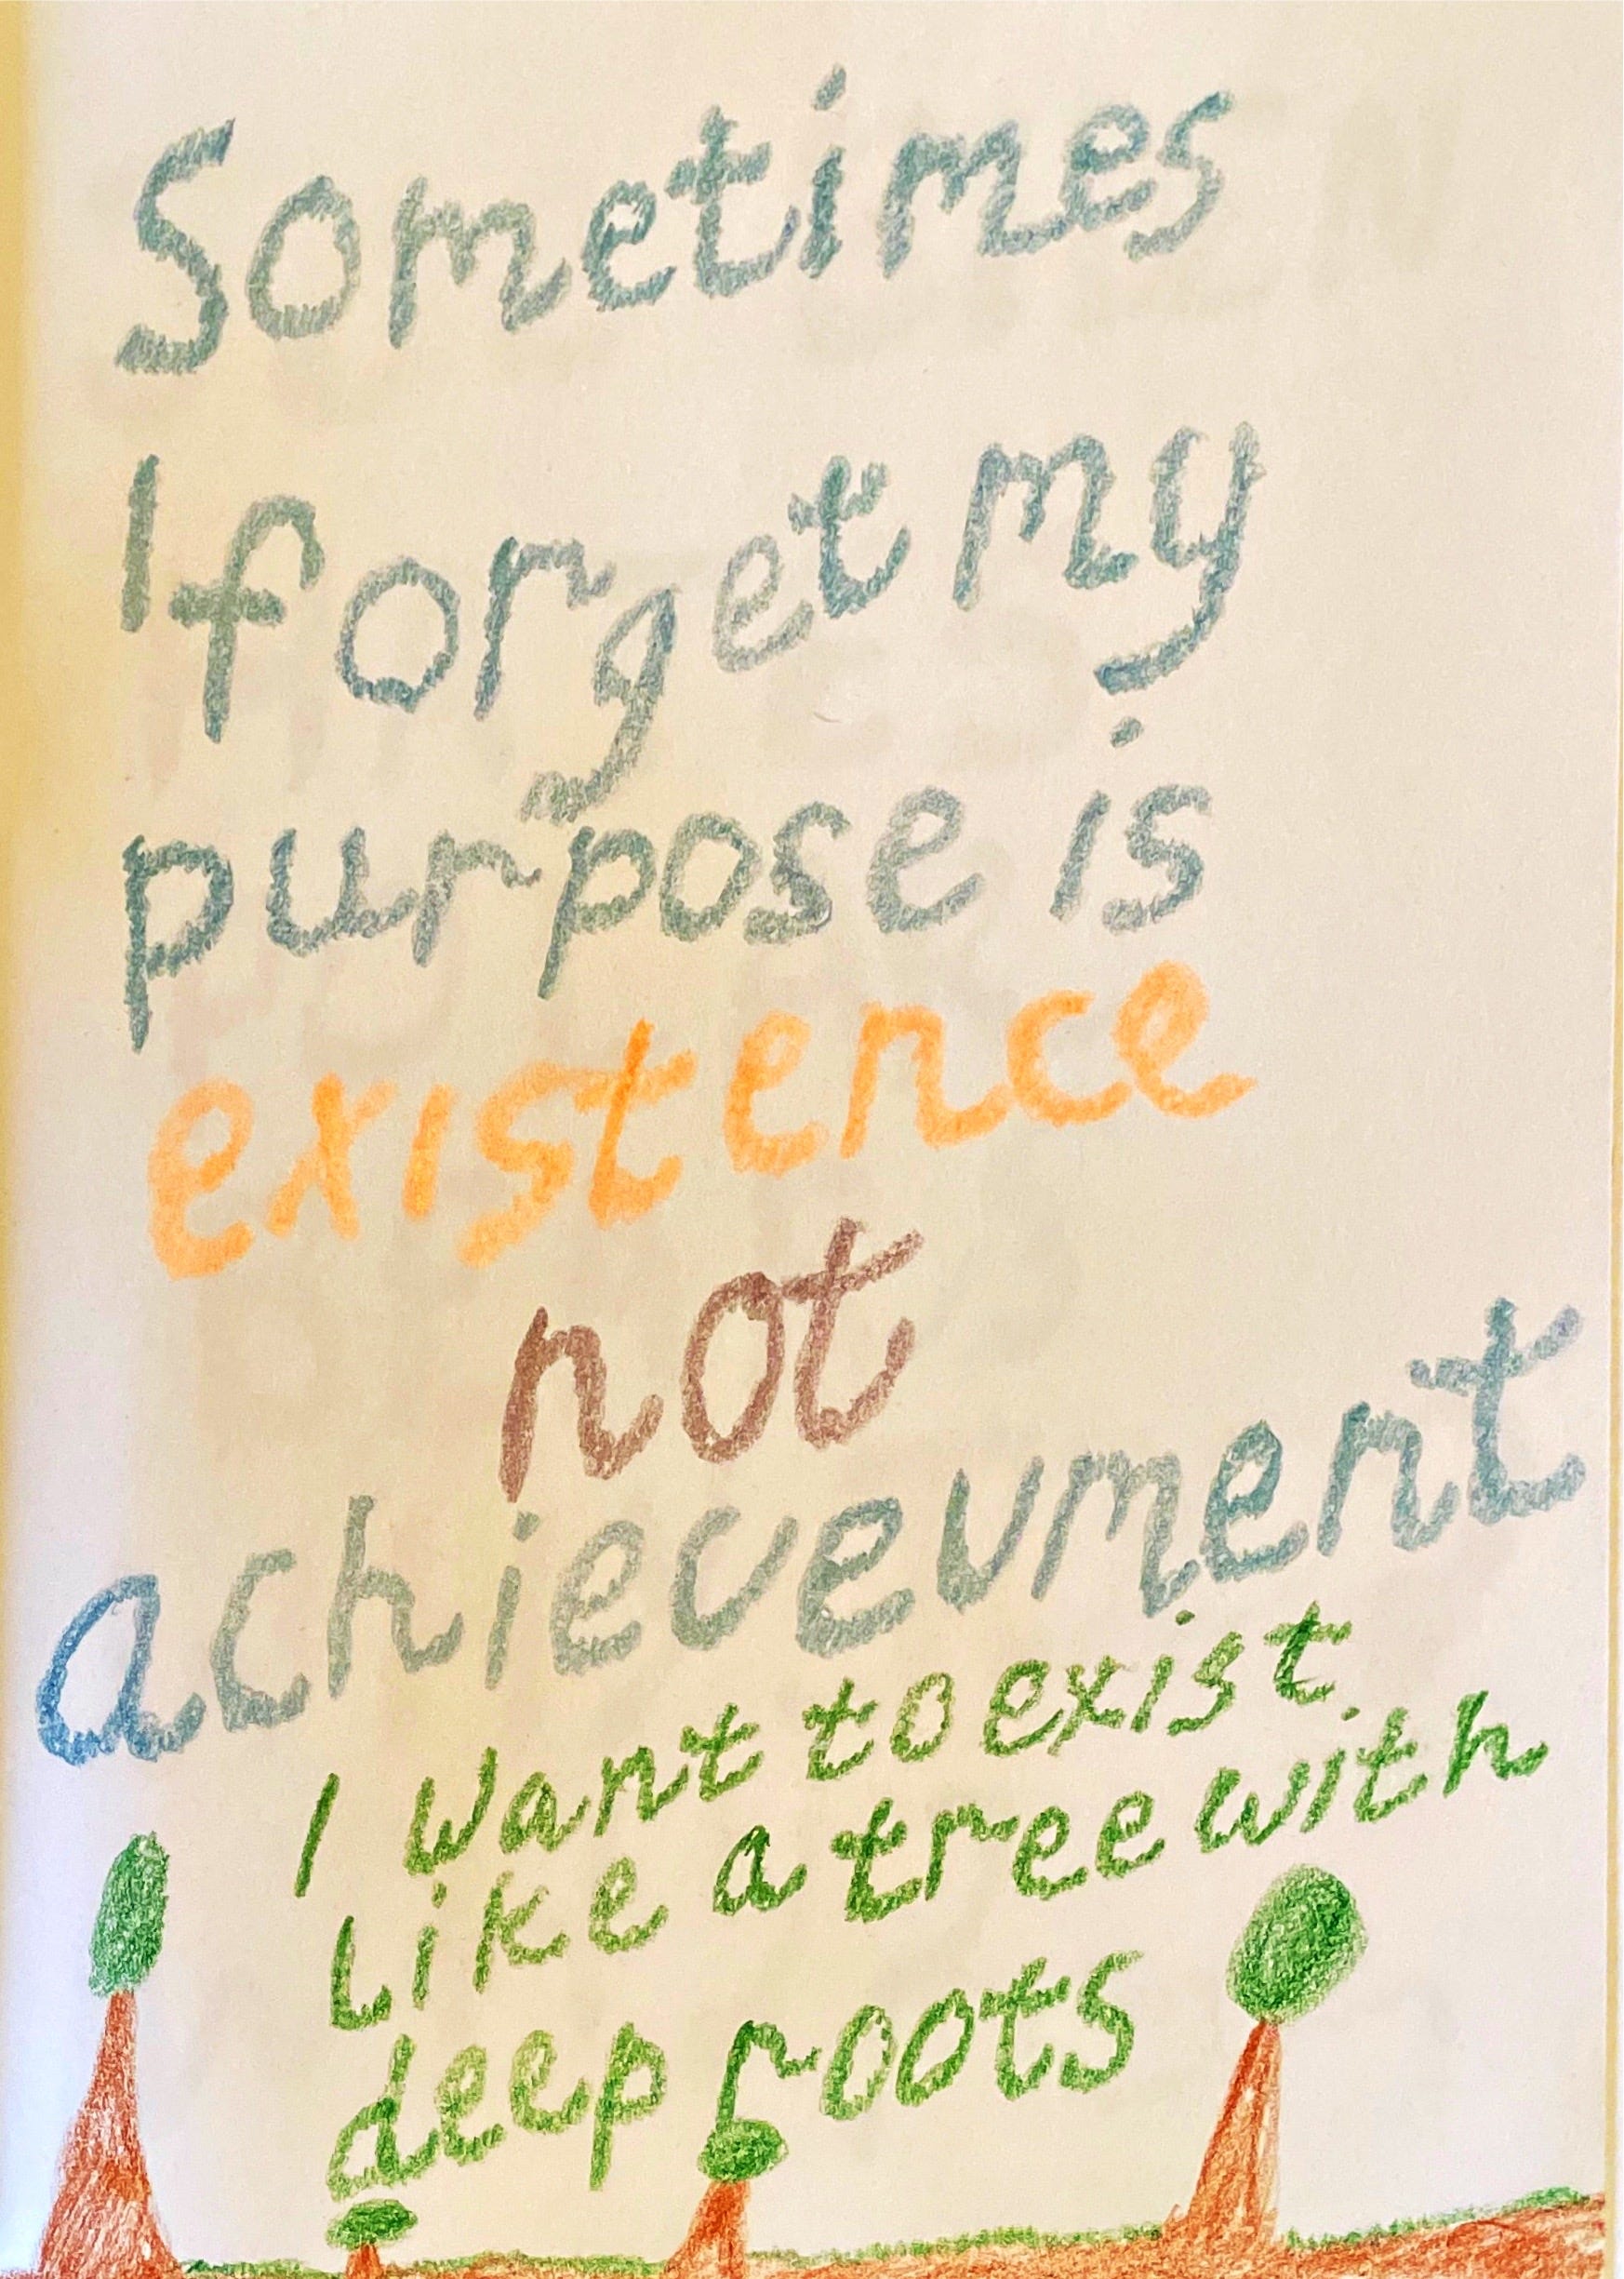 Sometimes
I forget my
purpose is
existence
not
achievevment
I want to exist.
Like a tree with
deep roots